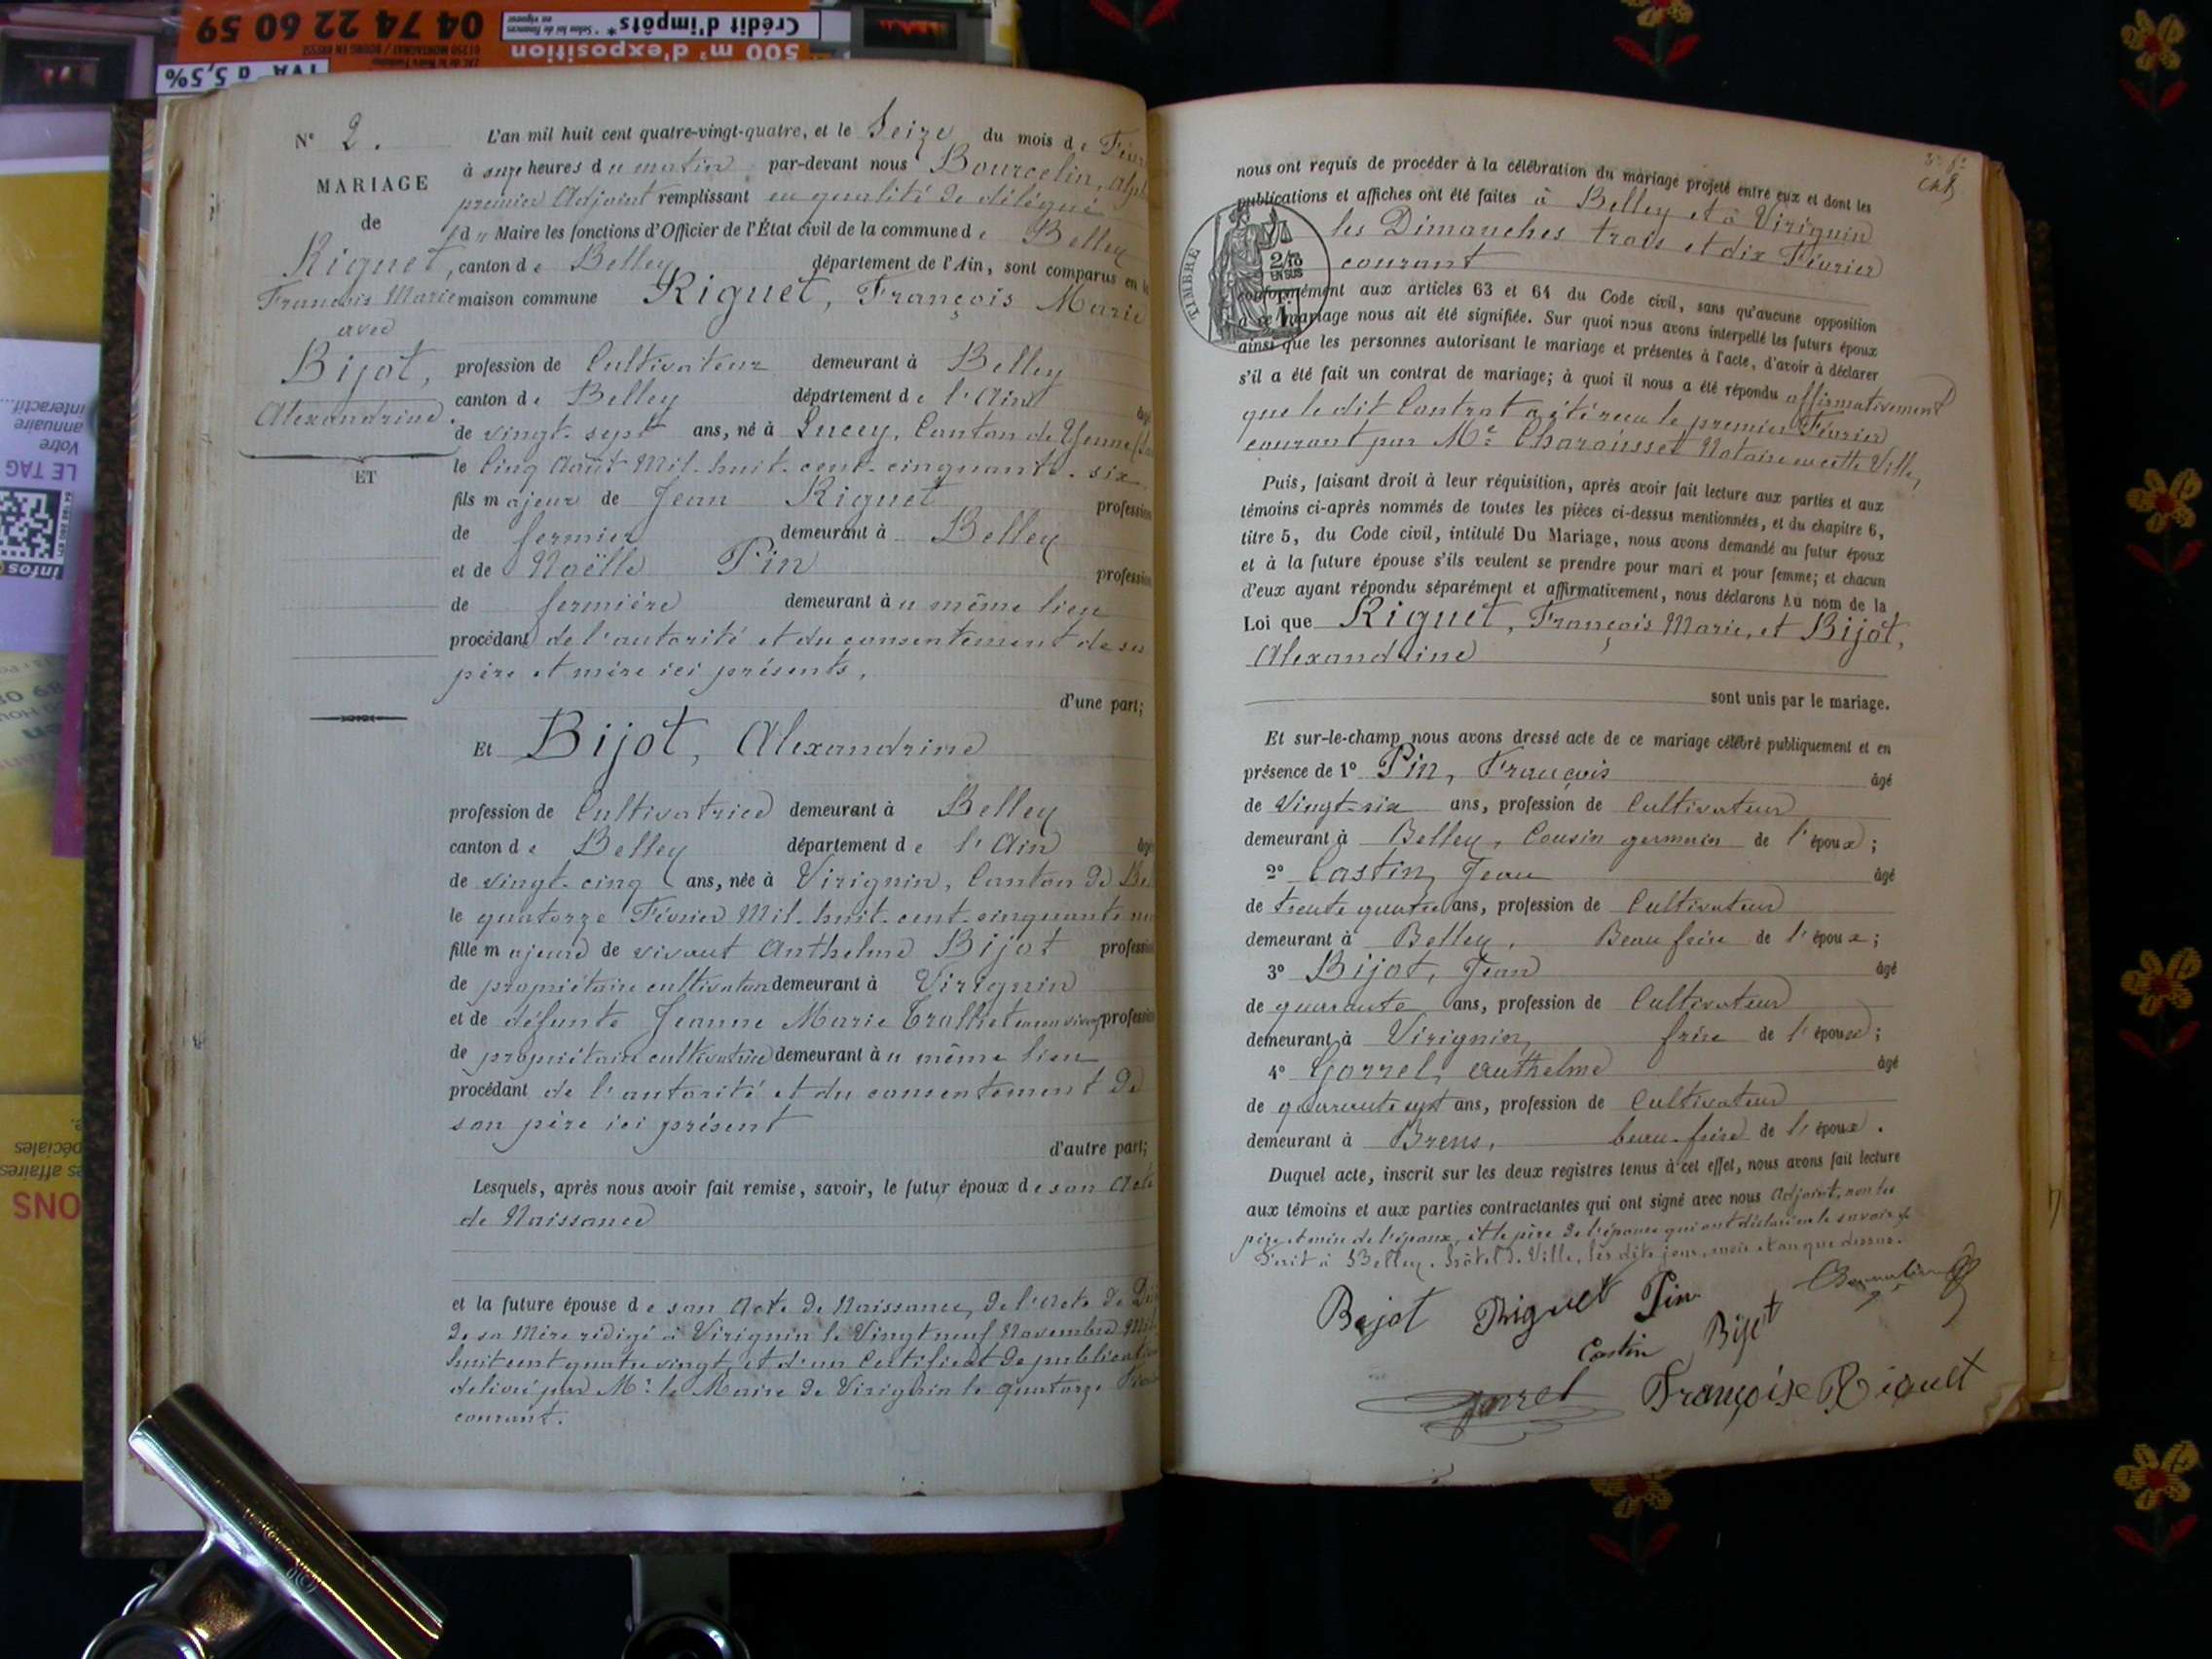 04 74 22 60 59
01250 MONTAGNAT / BOURG EN BRESSE
Crédit d'impôts*
* Selon loi de finances en vigueur
500 m² d'exposition
TVA à 5,5%
interactif...
annuaire
Votre
LE TAG
infos
N° 2.
MARIAGE
de
Riguet,
François Marie
avec
Bijot,
Alexandrine.
ET
L'an mil huit cent quatre-vingt-quatre, et le Seize du mois de
à onze heures du matin par-devant nous Bourcelin,
premier Adjoint remplissant en qualité de délégué
du Maire les fonctions d'Officier de l'État civil de la commune de Belley
canton de Belley département de l'Ain, sont comparus en
maison commune Riguet, François Marie
profession de Cultivateur demeurant à Belley
canton de Belley département de l'Ain âgé
de vingt-sept ans, né à Lucey, Canton de Yenne
le Cinq Août Mil-huit-cent-cinquante-six
fils majeur de Jean Riguet profession
de fermier demeurant à Belley
et de Noëlle Pin profession
de fermière demeurant au même lieu
procédant de l'autorité et du consentement de ses
père et mère ici présents,
d'une part;
Et Bijot, Alexandrine
profession de Cultivatrice demeurant à Belley
canton de Belley département de l'Ain
de vingt-cinq ans, née à Virignin, Canton de
le quatorze Février Mil-huit-cent-cinquante
fille majeure de vivant Anthelme Bijot profession
de propriétaire cultivateur demeurant à Virignin
et de défunte Jeanne Marie profession
de propriétaire cultivatrice demeurant au même lieu
procédant de l'autorité et du consentement de
son père ici présent
d'autre part;
Lesquels, après nous avoir fait remise, savoir, le futur époux de son Acte
de Naissance
et la future épouse de son Acte de Naissance, de l'Acte de
de sa Mère rédigé à Virignin le Vingt neuf Novembre Mil
huit cent quatre vingt, et d'un Certificat de publication
délivré par Mr. le Maire de Virignin le quatorze
courant.
nous ont requis de procéder à la célébration du mariage projeté entre eux et dont les
publications et affiches ont été faites à Belley et à Virignin
les Dimanches trois et dix Février
courant
TIMBRE
2/10 EN SUS
conformément aux articles 63 et 64 du Code civil, sans qu'aucune opposition
à ce mariage nous ait été signifiée. Sur quoi nous avons interpellé les futurs époux
ainsi que les personnes autorisant le mariage et présentes à l'acte, d'avoir à déclarer
s'il a été fait un contrat de mariage; à quoi il nous a été répondu affirmativement
que le dit Contrat a été reçu le premier Février
courant par Me Charousset Notaire en cette Ville,
Puis, faisant droit à leur réquisition, après avoir fait lecture aux parties et aux
témoins ci-après nommés de toutes les pièces ci-dessus mentionnées, et du chapitre 6,
titre 5, du Code civil, intitulé Du Mariage, nous avons demandé au futur époux
et à la future épouse s'ils veulent se prendre pour mari et pour femme; et chacun
d'eux ayant répondu séparément et affirmativement, nous déclarons Au nom de la
Loi que Riguet, François Marie, et Bijot,
Alexandrine
sont unis par le mariage.
Et sur-le-champ nous avons dressé acte de ce mariage célébré publiquement et en
présence de 1° Pin, François âgé
de Vingt-six ans, profession de Cultivateur
demeurant à Belley, Cousin germain de l'époux;
2° Castin, Jean âgé
de trente quatre ans, profession de Cultivateur
demeurant à Belley, Beau frère de l'époux;
3° Bijot, Jean âgé
de quarante ans, profession de Cultivateur
demeurant à Virignin, frère de l'épouse;
4° Gorrel, Anthelme âgé
de quarante sept ans, profession de Cultivateur
demeurant à Brens, beau-frère de l'épouse.
Duquel acte, inscrit sur les deux registres tenus à cet effet, nous avons fait lecture
aux témoins et aux parties contractantes qui ont signé avec nous Adjoint, non les
père et mère de l'époux, et le père de l'épouse qui ont déclaré ne le savoir
Fait à Belley, hôtel de Ville, les dits jour, mois et an que dessus.
Bejot Riguet Pin
Castin Bijot
Gorrel Françoise Riguet